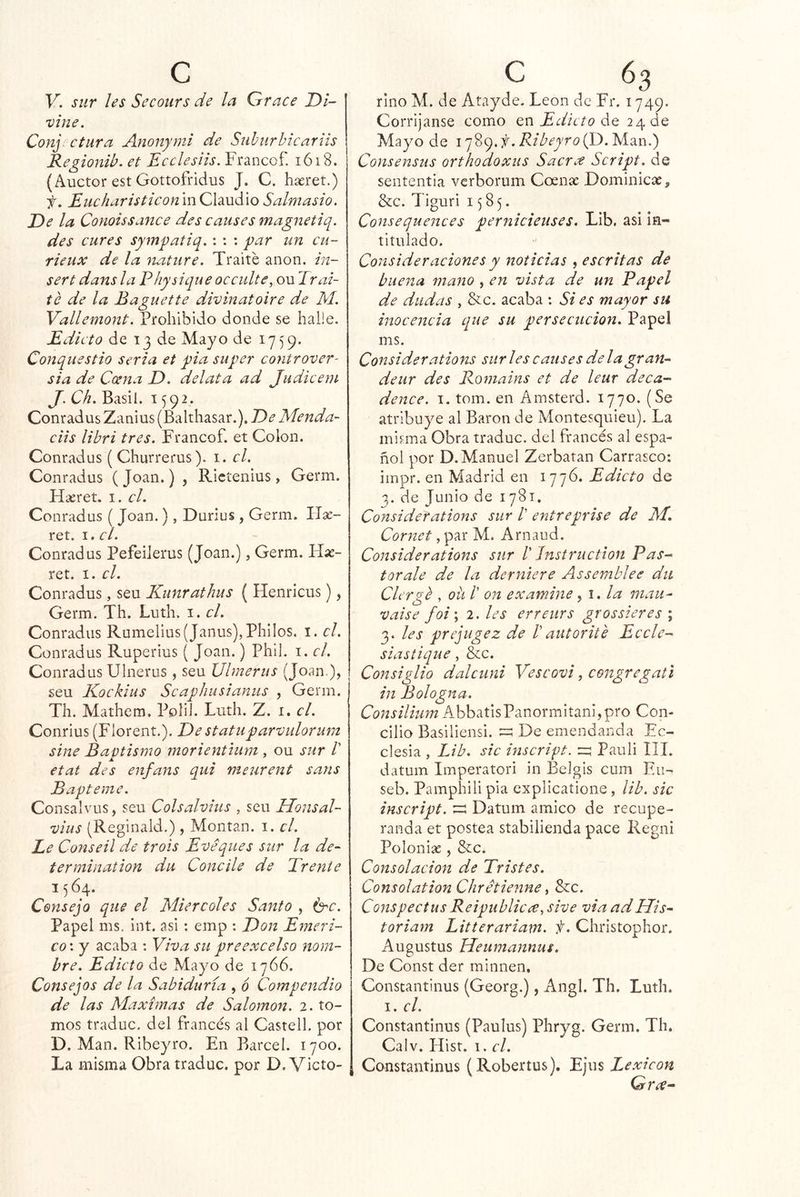 C
V. sur les Secours de la Grace Di-
vine.
Conj ctura Anonymi de Suburbicariis
Regionib. et Ecclesiis. Francof. 1618.
(Auctor est Gottofridus J. C. hæret.)
ỳ. Eucharisticon in Claudio Salmasio.
De la Conoissance des causes magnetiq.
des cures sympatiq. : : : par un cu-
rieux de la nature. Traitè anon. in-
sert dans la Physique occulte, ou Trai-
tè de la Baguette divinatoire de M.
Vallemont. Prohibido donde se halle.
Edicto de 13 de Mayo de 1759.
Conquestio seria et pia super controver-
sia de Cœna D. delata ad Judicem
J. Ch. Basil. 1592.
Conradus Zanius (Balthasar.). De Menda-
ciis libri tres. Francof. et Colon.
Conradus ( Churrerus ). 1. cl.
Conradus ( Joan. ) , Rictenius , Germ.
Hæret. 1. cl.
Conradus ( Joan. ) , Durius , Germ. Hæ-
ret. 1. cl.
Conradus Pefeilerus (Joan.) , Germ. Hæ-
ret. 1. cl.
Conradus , seu Kunrathus ( Henricus ) ,
Germ. Th. Luth. 1. cl.
Conradus Rumelius (Janus), Philos. 1. cl.
Conradus Ruperius ( Joan. ) Phil. 1. cl.
Conradus Ulnerus , seu Ulmerus (Joan.),
seu Kockius Scaphusianus , Germ.
Th. Mathem. Polil. Luth. Z. 1. cl.
Conrius (Florent.). De statu parvulorum
sine Baptismo morientium , ou sur l'
etat des enfans qui meurent sans
Bapteme.
Consalvus, seu Colsalvius , seu Honsal-
vius (Reginald.) , Montan. 1. cl.
Le Conseil de trois Evêques sur la de-
termination du Concile de Trente
1564.
Consejo que el Miercoles Santo , &c.
Papel ms. int. asi : emp : Don Emeri-
co : y acaba : Viva su preexcelso nom-
bre. Edicto de Mayo de 1766.
Consejos de la Sabiduría , ó Compendio
de las Maximas de Salomon. 2. to-
mos traduc. del francés al Castell. por
D. Man. Ribeyro. En Barcel. 1700.
La misma Obra traduc. por D. Victo-
C 63
rino M. de Atayde. Leon de Fr. 1749.
Corrijanse como en Edicto de 24 de
Mayo de 1789. ỳ. Ribeyro (D. Man.)
Consensus orthodoxus Sacræ Script. de
sententia verborum Cœnæ Dominicæ,
&c. Tiguri 1585.
Consequences pernicieuses. Lib. asi in-
titulado.
Consideraciones y noticias , escritas de
buena mano , en vista de un Papel
de dudas , &c. acaba : Si es mayor su
inocencia que su persecucion. Papel
ms.
Considerations sur les causes de la gran-
deur des Romains et de leur deca-
dence. 1. tom. en Amsterd. 1770. (Se
atribuye al Baron de Montesquieu). La
misma Obra traduc. del francés al espa-
ñol por D. Manuel Zerbatan Carrasco:
impr. en Madrid en 1776. Edicto de
3. de Junio de 1781.
Considerations sur l' entreprise de M.
Cornet , par M. Arnaud.
Considerations sur l' Instruction Pas-
torale de la derniere Assemblee du
Clergè , où l' on examine , 1. la mau-
vaise foi ; 2. les erreurs grossieres ;
3. les prejugez de l' autoritè Eccle-
siastique , &c.
Consiglio dalcuni Vescovi , congregati
in Bologna.
Consilium Abbatis Panormitani, pro Con-
cilio Basiliensi. = De emendanda Ec-
clesia , Lib. sic inscript. = Pauli III.
datum Imperatori in Belgis cum Eu-
seb. Pamphili pia explicatione , lib. sic
inscript. = Datum amico de recupe-
randa et postea stabilienda pace Regni
Poloniæ , &c.
Consolacion de Tristes.
Consolation Chrêtienne , &c.
Conspectus Reipublicæ, sive via ad His-
toriam Litterariam. ỳ. Christophor.
Augustus Heumannus.
De Const der minnen,
Constantinus (Georg.) , Angl. Th. Luth.
1. cl.
Constantinus (Paulus) Phryg. Germ. Th.
Calv. Hist. 1. cl.
Constantinus ( Robertus). Ejus Lexicon
Græ-